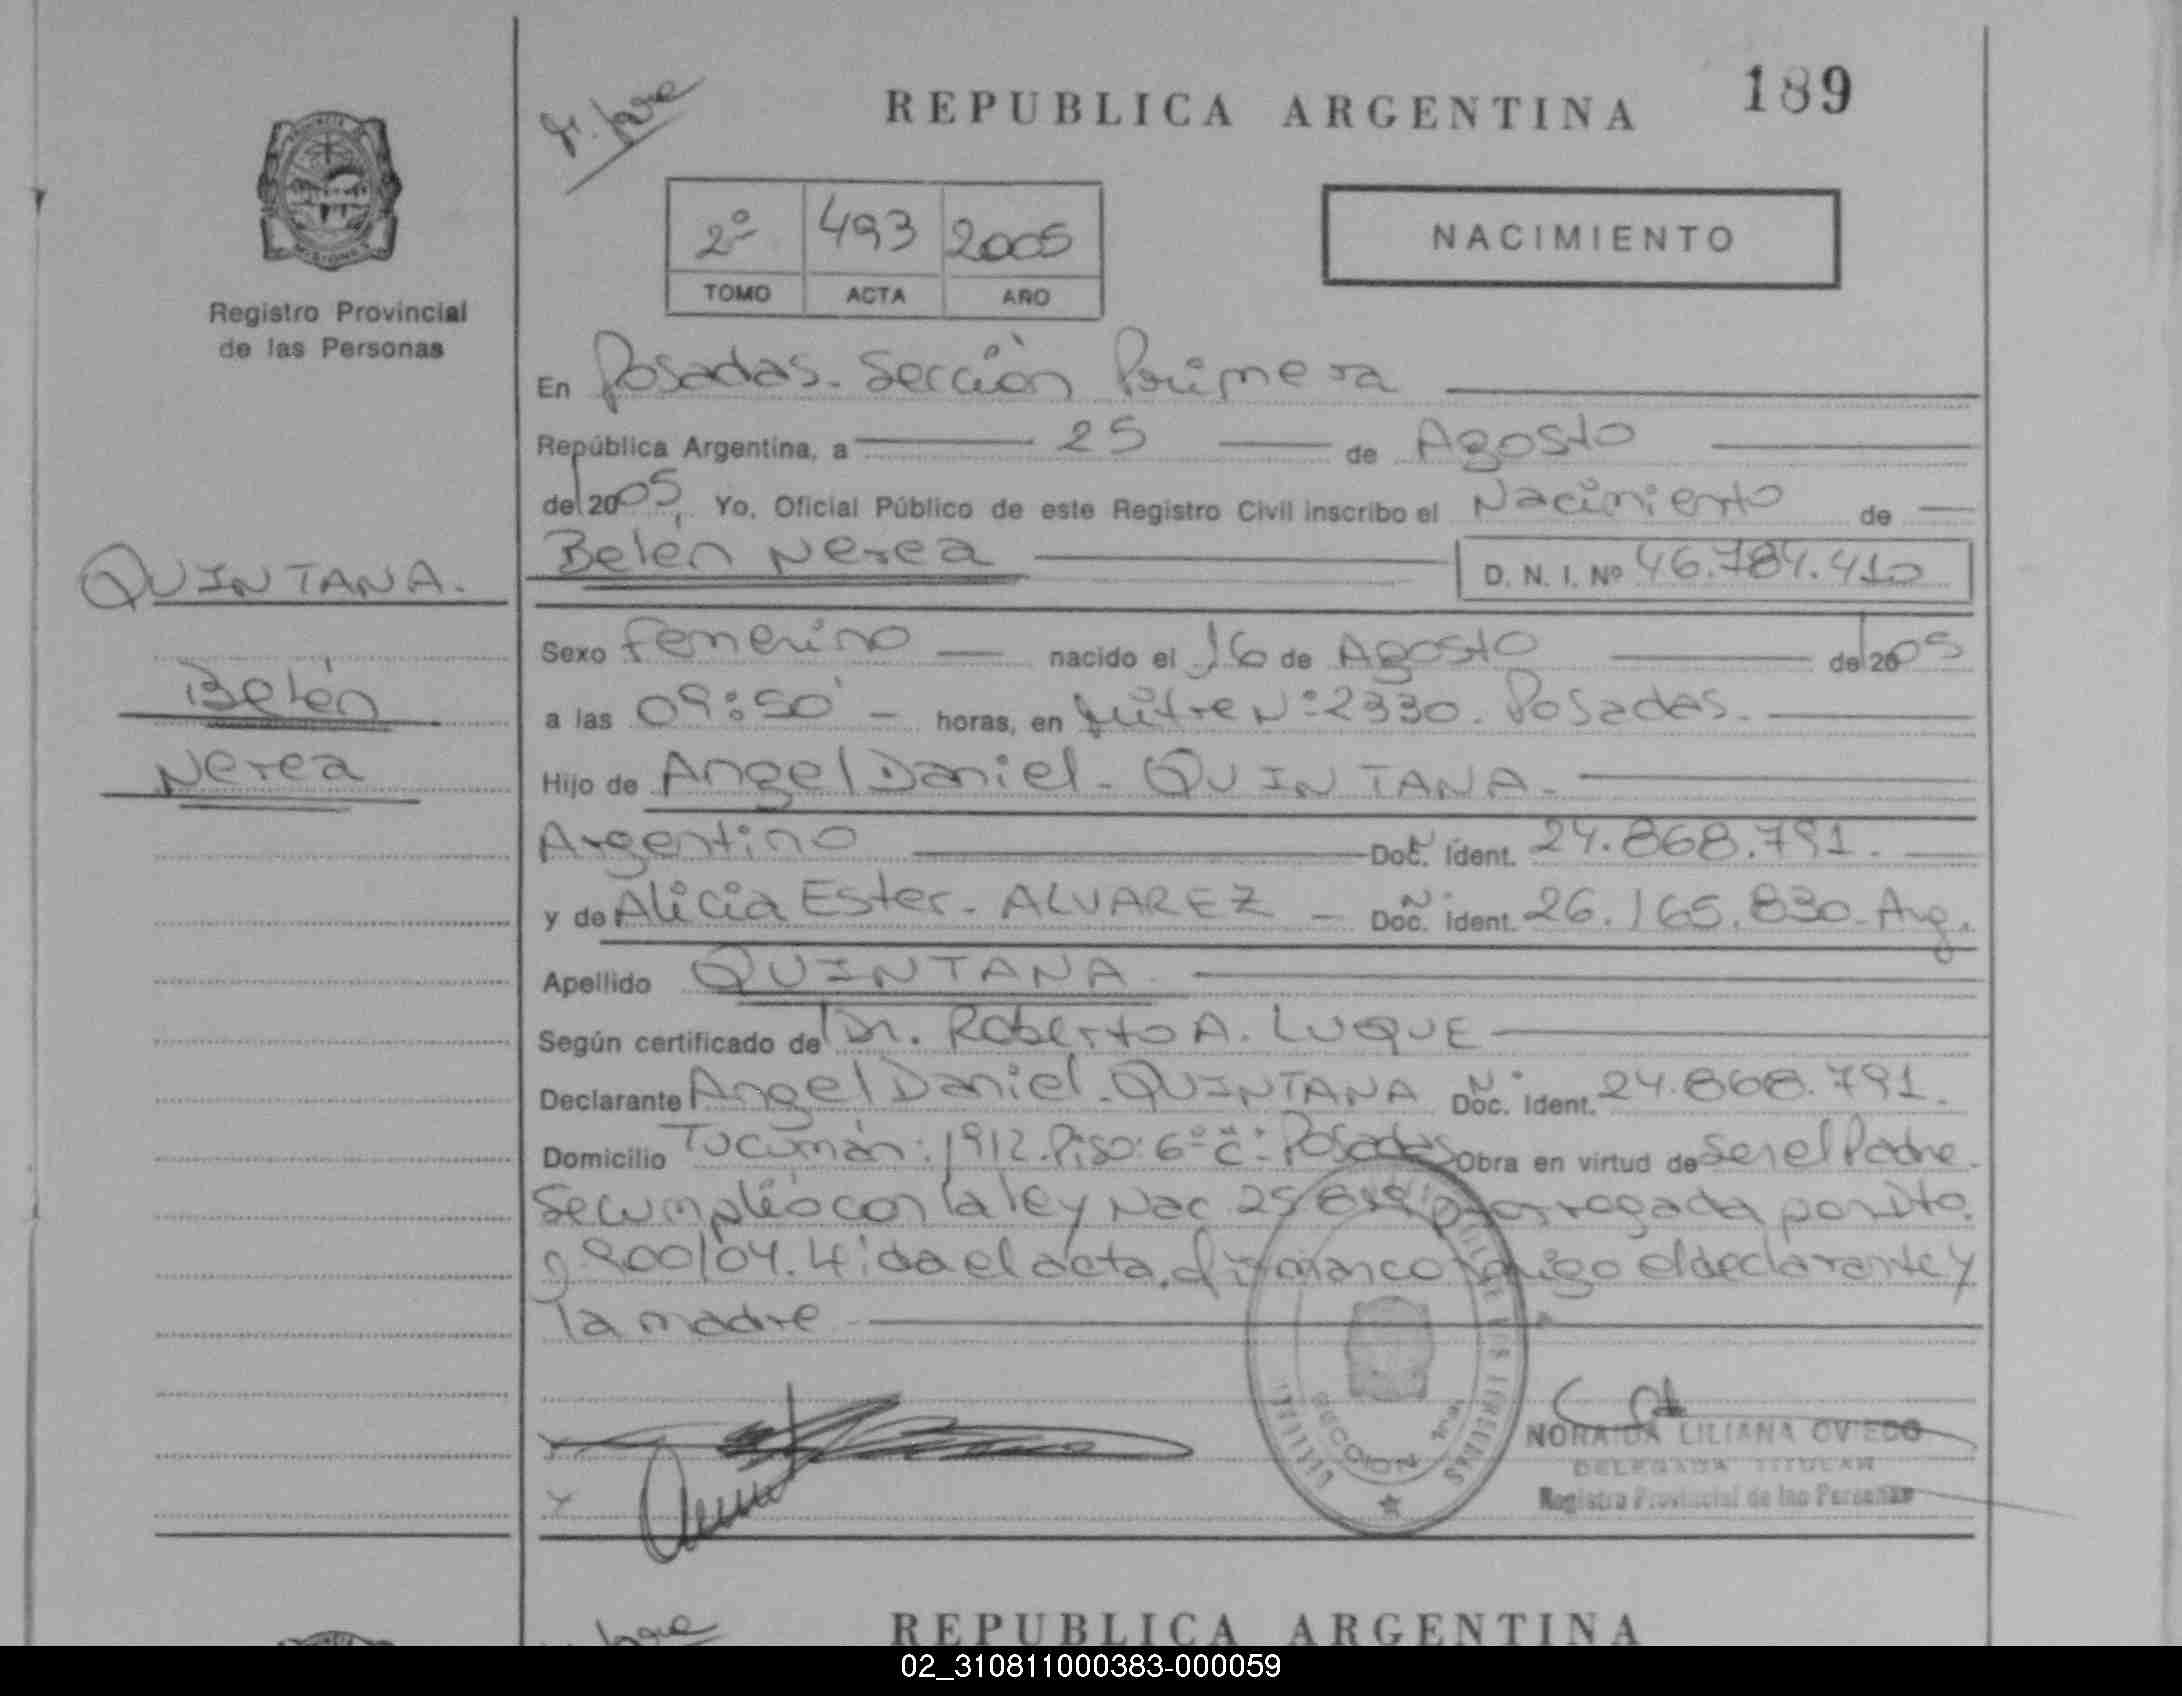 189
REPUBLICA ARGENTINA
NACIMIENTO
2º 493 2005
TOMO ACTA AÑO
Registro Provincial
de las Personas
En Posadas. Sección Primera
República Argentina, a 25 de Agosto
del 2005, Yo, Oficial Público de este Registro Civil inscribo el Nacimiento de
Belén Nerea D. N. I. Nº 46.784.410
QUINTANA.
Belén
Nerea
Sexo femenino nacido el 16 de Agosto del 2005
a las 09:50' horas, en Mitre Nº: 2330. Posadas.
Hijo de Angel Daniel - QUINTANA.
Argentino Nº Doc. Ident. 24.868.791.
y de Alicia Ester - ALVAREZ Nº Doc. Ident. 26.165.830 - Arg.
Apellido QUINTANA
Según certificado de Dr. Roberto A. LUQUE
Declarante Angel Daniel - QUINTANA Nº Doc. Ident. 24.868.791.
Domicilio Tucumán: 1912. Piso: 6º "C". Posadas Obra en virtud de ser el Padre.
Se cumplió con la ley Nac. 25 prorrogada por Dto.
900/04. Leida el acta, firman conmigo el declarante y
la madre
SECCION
NORAIDA LILIANA OVIEDO
DELEGADA TITULAR
Registro Provincial de las Personas
REPUBLICA ARGENTINA
02_310811000383-000059